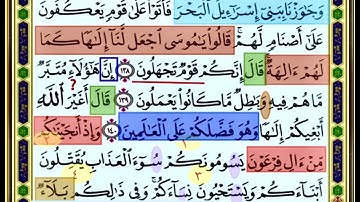 وَجَٰوَزْنَا بِبَنِىٓ إِسْرَٰٓءِيلَ ٱلْبَحْرَ فَأَتَوْا۟ عَلَىٰ قَوْمٍ يَعْكُفُونَ
عَلَىٰٓ أَصْنَامٍ لَّهُمْ ۚ قَالُوا۟ يَٰمُوسَى ٱجْعَل لَّنَآ إِلَٰهًا كَمَا
لَهُمْ ءَالِهَةٌ ۚ قَالَ إِنَّكُمْ قَوْمٌ تَجْهَلُونَ ١٣٨ إِنَّ هَٰٓؤُلَآءِ مُتَبَّرٌ
مَّا هُمْ فِيهِ وَبَٰطِلٌ مَّا كَانُوا۟ يَعْمَلُونَ ١٣٩ قَالَ أَغَيْرَ ٱللَّهِ
أَبْغِيكُمْ إِلَٰهًا وَهُوَ فَضَّلَكُمْ عَلَى ٱلْعَٰلَمِينَ ١٤٠ وَإِذْ أَنجَيْنَٰكُم
مِّنْ ءَالِ فِرْعَوْنَ يَسُومُونَكُمْ سُوٓءَ ٱلْعَذَابِ ۖ يُقَتِّلُونَ
أَبْنَآءَكُمْ وَيَسْتَحْيُونَ نِسَآءَكُمْ ۚ وَفِى ذَٰلِكُم بَلَآءٌ